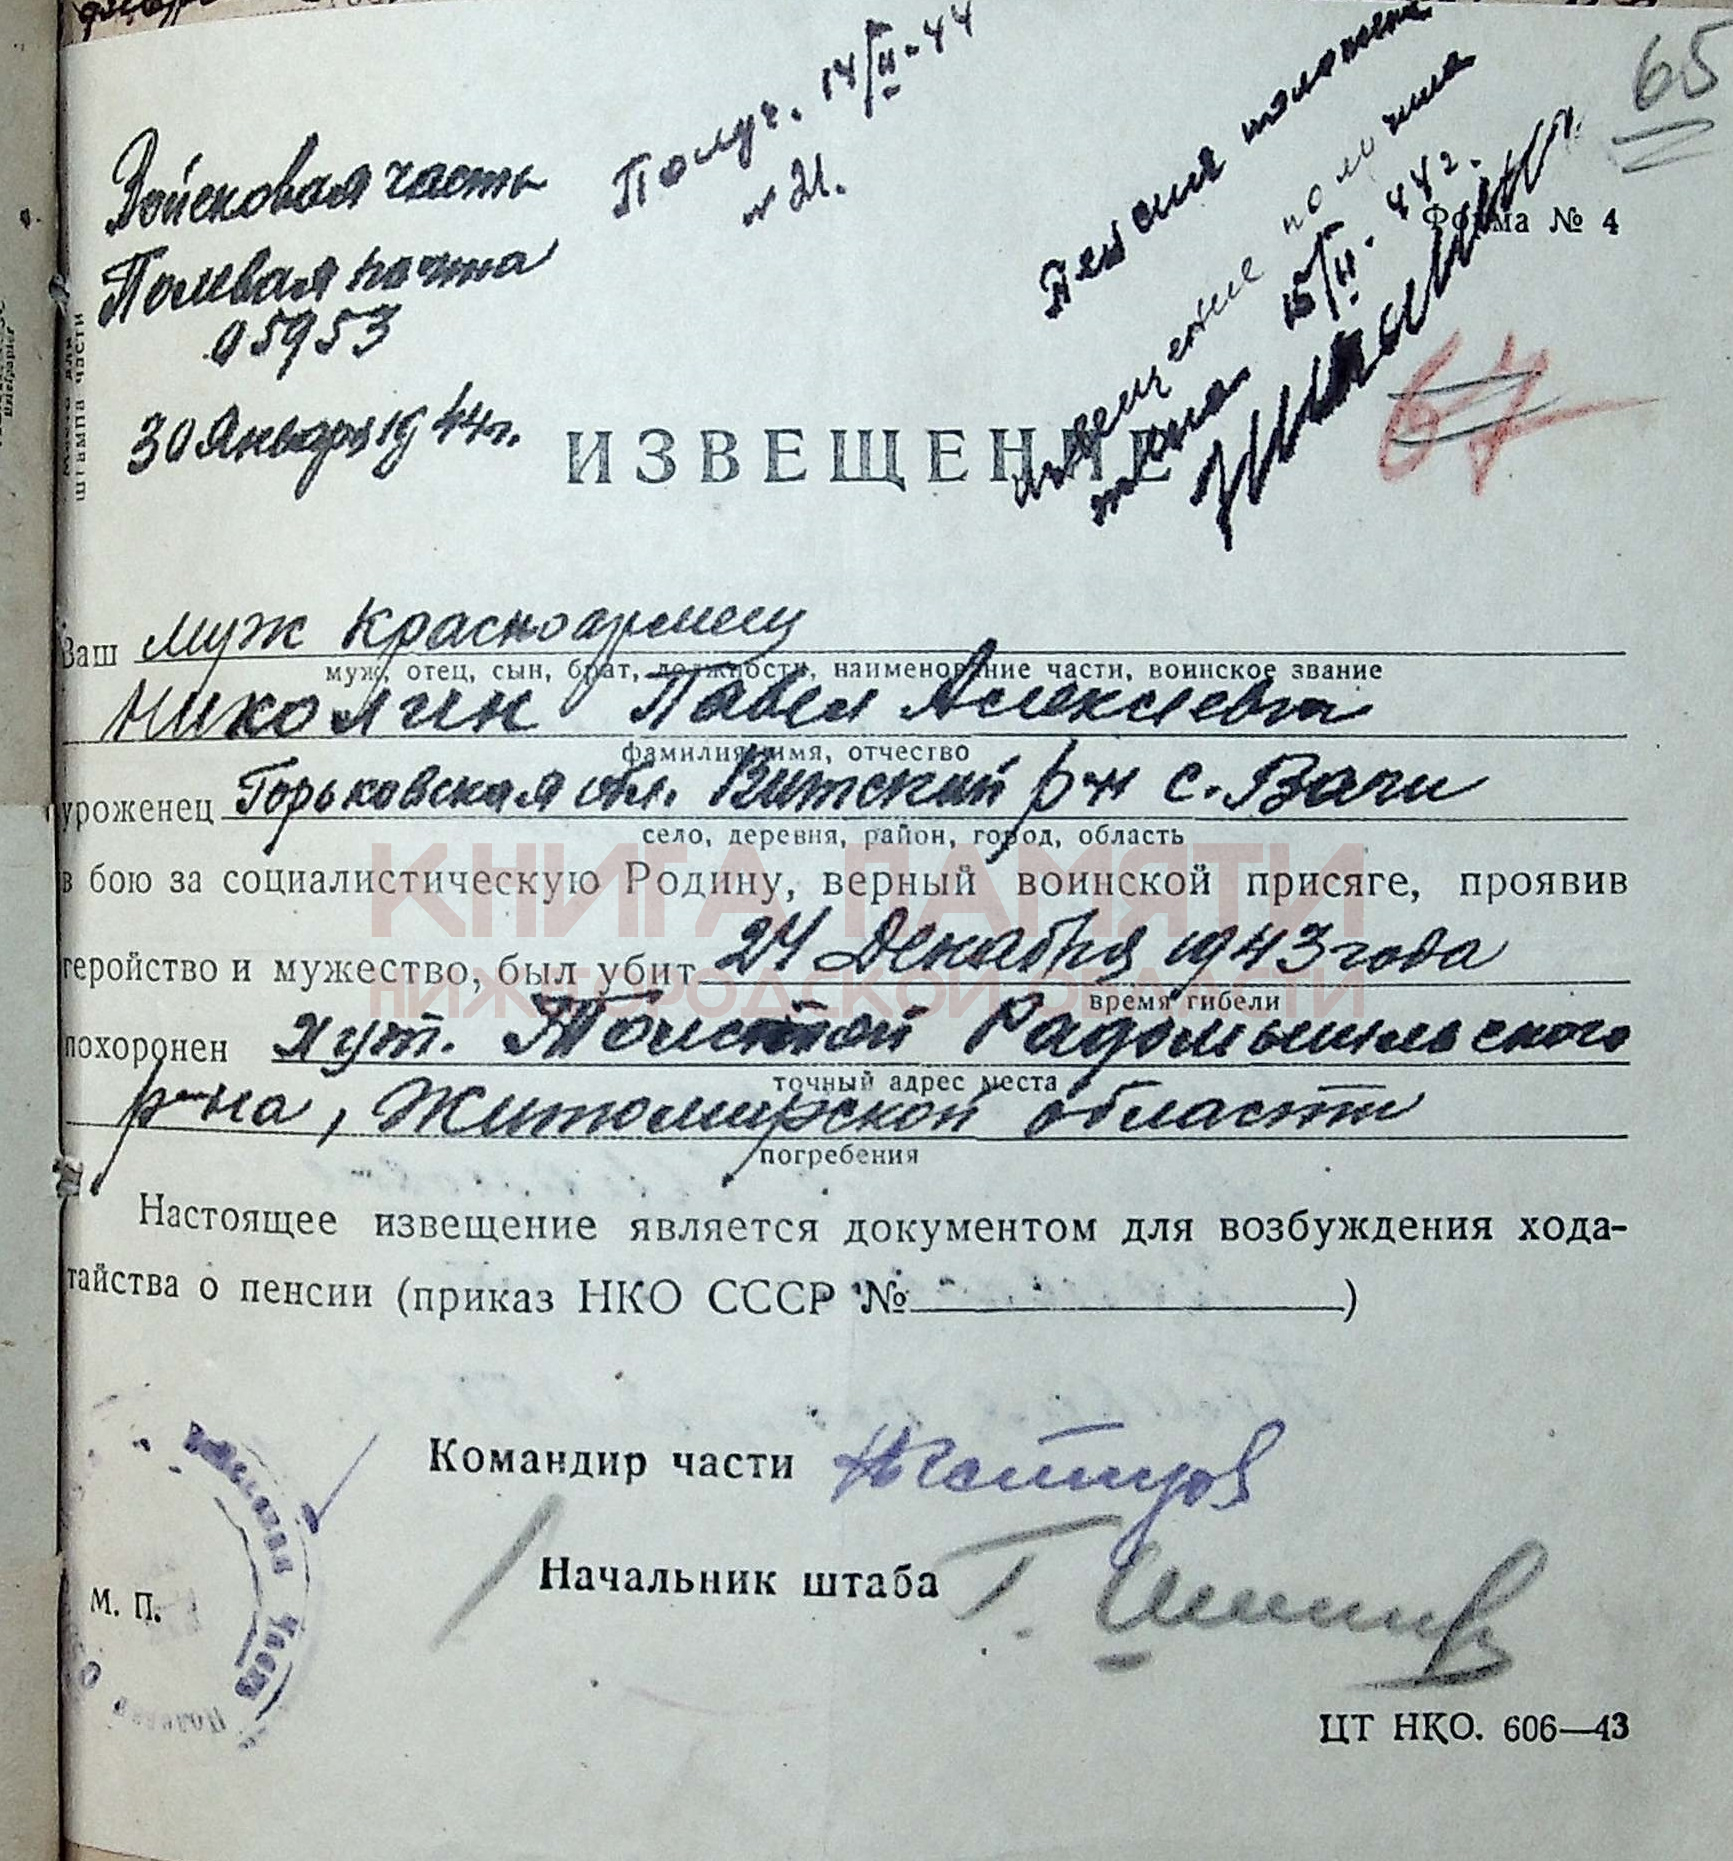 65
Получ. 14/II-44
№ 21.
Войсковая часть
Полевая почта
05953
30 Января 1944г.
Место для
штампа части
Форма № 4
Пенсия
извещение получила
жена 15/II-44г.
67
ИЗВЕЩЕНИЕ
Ваш муж красноармеец
муж, отец, сын, брат, должности, наименование части, воинское звание
Николин Павел Алексеевич
фамилия, имя, отчество
уроженец Горьковская обл. Витский р-н с. Вачи
село, деревня, район, город, область
в бою за социалистическую Родину, верный воинской присяге, проявив
геройство и мужество, был убит 24 Декабря 1943 года
время гибели
похоронен хут. Толстой Радомышльского
точный адрес места
р-на, Житомирской области
погребения
КНИГА ПАМЯТИ
НИЖЕГОРОДСКОЙ ОБЛАСТИ
Настоящее извещение является документом для возбуждения хода-
тайства о пенсии (приказ НКО СССР № )
Командир части
Начальник штаба
М. П.
ЦТ НКО. 606—43